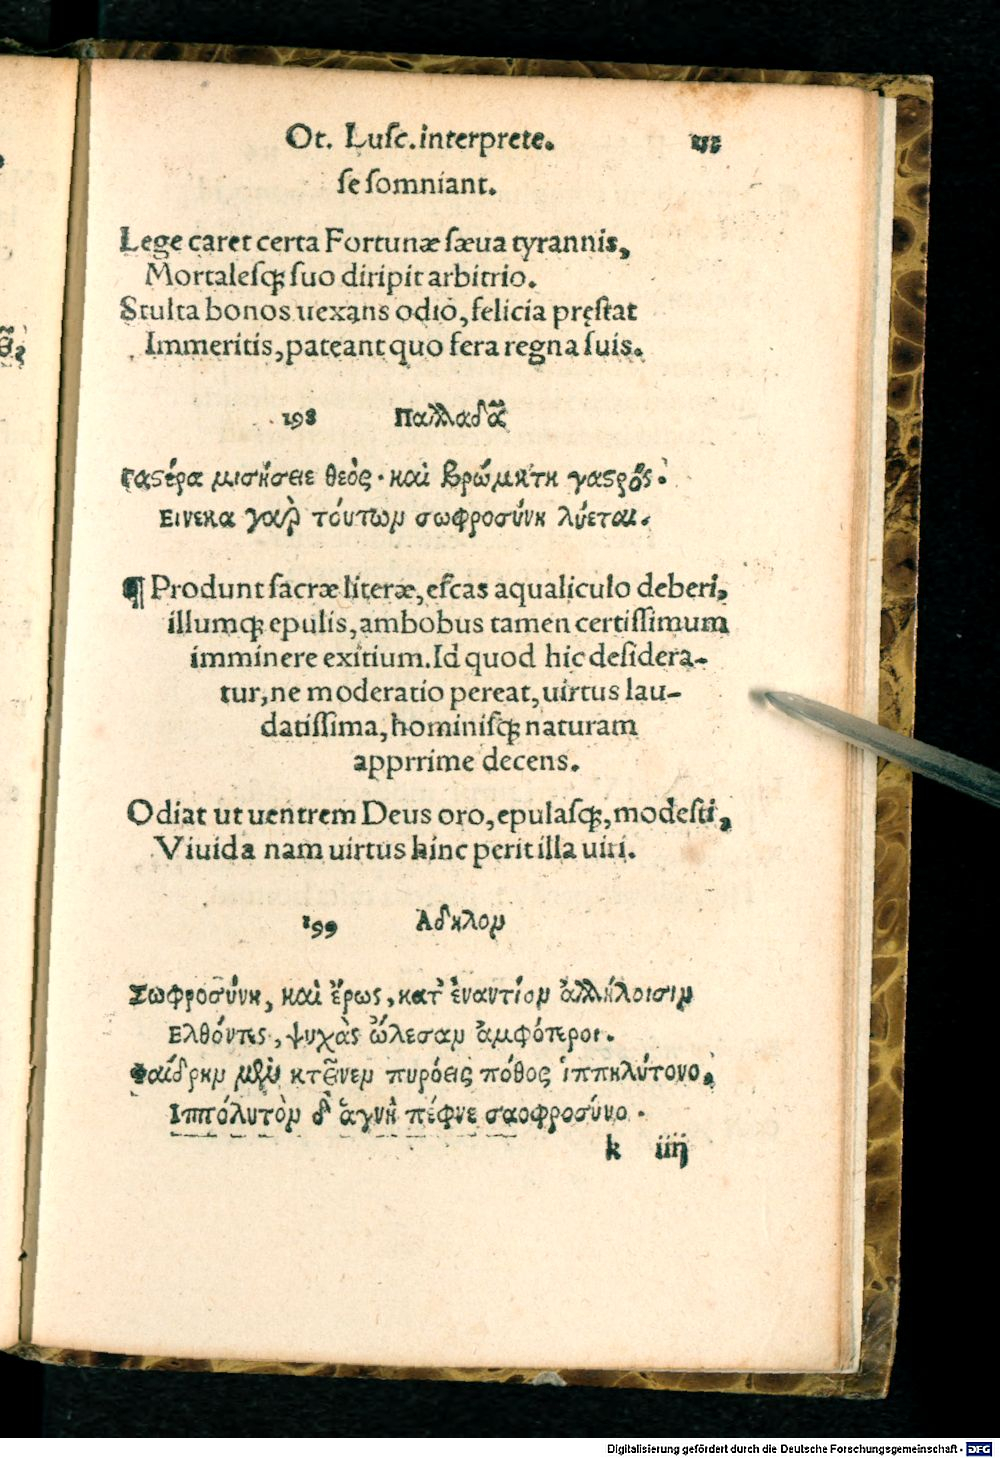 Ot. Lusc. interprete.
se somniant.
Lege caret certa Fortunæ sæua tyrannis,
Mortalesq; suo diripit arbitrio.
Stulta bonos uexans odio, felicia pręstat
Immeritis, pateant quo fera regna suis.
198 Παλλαδᾶ
Γαστέρα μισήσειε θεὸς · καὶ βρώματη γαστρός ·
Εινεκα γὰρ τόυτων σωφροσύνη λύεται.
¶ Produnt sacræ literæ, escas aqualiculo deberi,
illumq; epulis, ambobus tamen certissimum
imminere exitium. Id quod hic desidera-
tur, ne moderatio pereat, uirtus lau-
datissima, hominisq; naturam
apprrime decens.
Odiat ut uentrem Deus oro, epulasq;, modesti,
Viuida nam uirtus hinc perit illa uiri.
199 Αδηλον
Σωφροσύνη, καὶ ἔρως, κατ' ἐναντίον ἀλλήλοισιν
Ελθόντες, ψυχὰς ὤλεσαν ἀμφότεροι.
Φαίδρην μὲν κτεῖνεν πυρόεις πόθος ἱππηλύτονο,
Ιππόλυτον δ' ἁγνὴ πέφνε σαοφροσύνη ·
k iiij
Digitalisierung gefördert durch die Deutsche Forschungsgemeinschaft - DFG